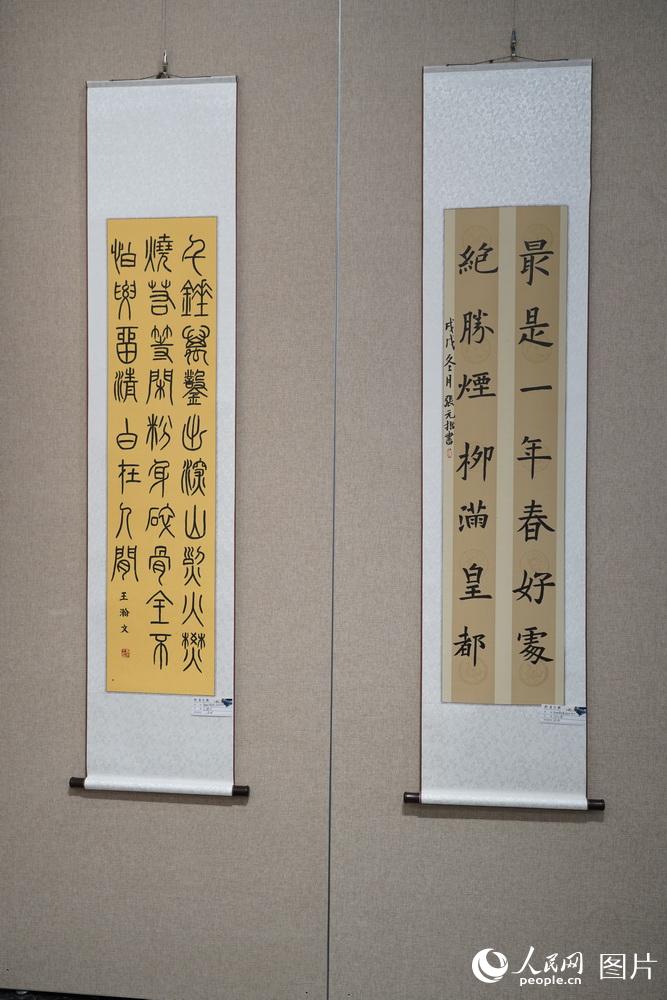 千錘萬鑿出深山烈火焚
燒若等閑粉身碎骨全不
怕要留清白在人間
王瀚文
最是一年春好處
絕勝煙柳滿皇都
戊戌冬月 張元書
人民网 图片
people.cn